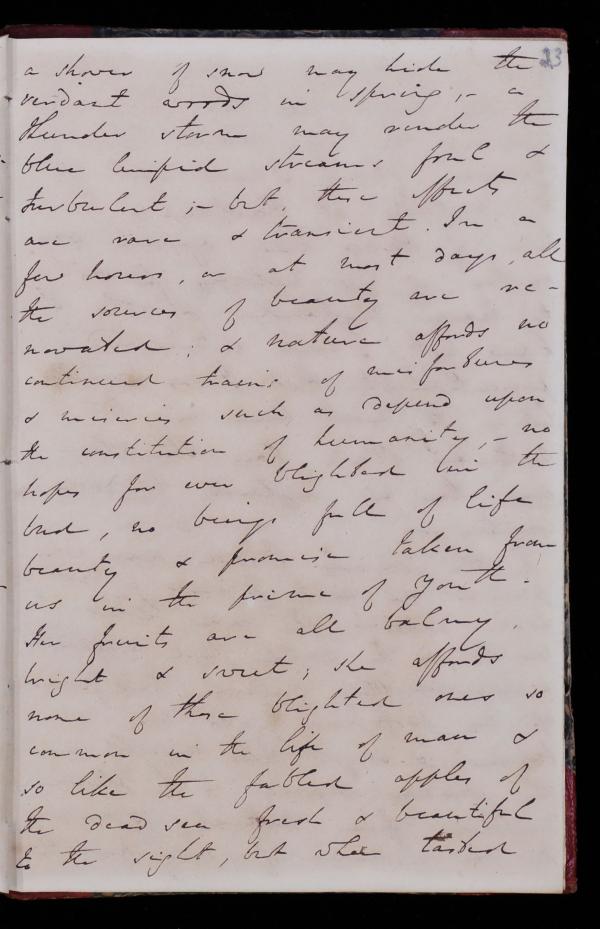 23
a shower of snow may hide the
verdant woods in spring, - a
thunder storm may render the
blue limpid streams foul &
turbulent; - but, these effects
are rare & transient. In a
few hours, or at most days, all
the sources of beauty are re-
novated; & nature affords no
continued trains of misfortunes
& miseries such as depend upon
the constitution of humanity, - no
hopes for ever blighted in the
bud, no beings full of life
beauty & promise taken from
us in the prime of youth.
Her fruits are all balmy,
bright & sweet; she affords
none of those blighted ones so
common in the life of man &
so like the fabled apples of
the dead sea fresh & beautiful
to the sight, but when tasted